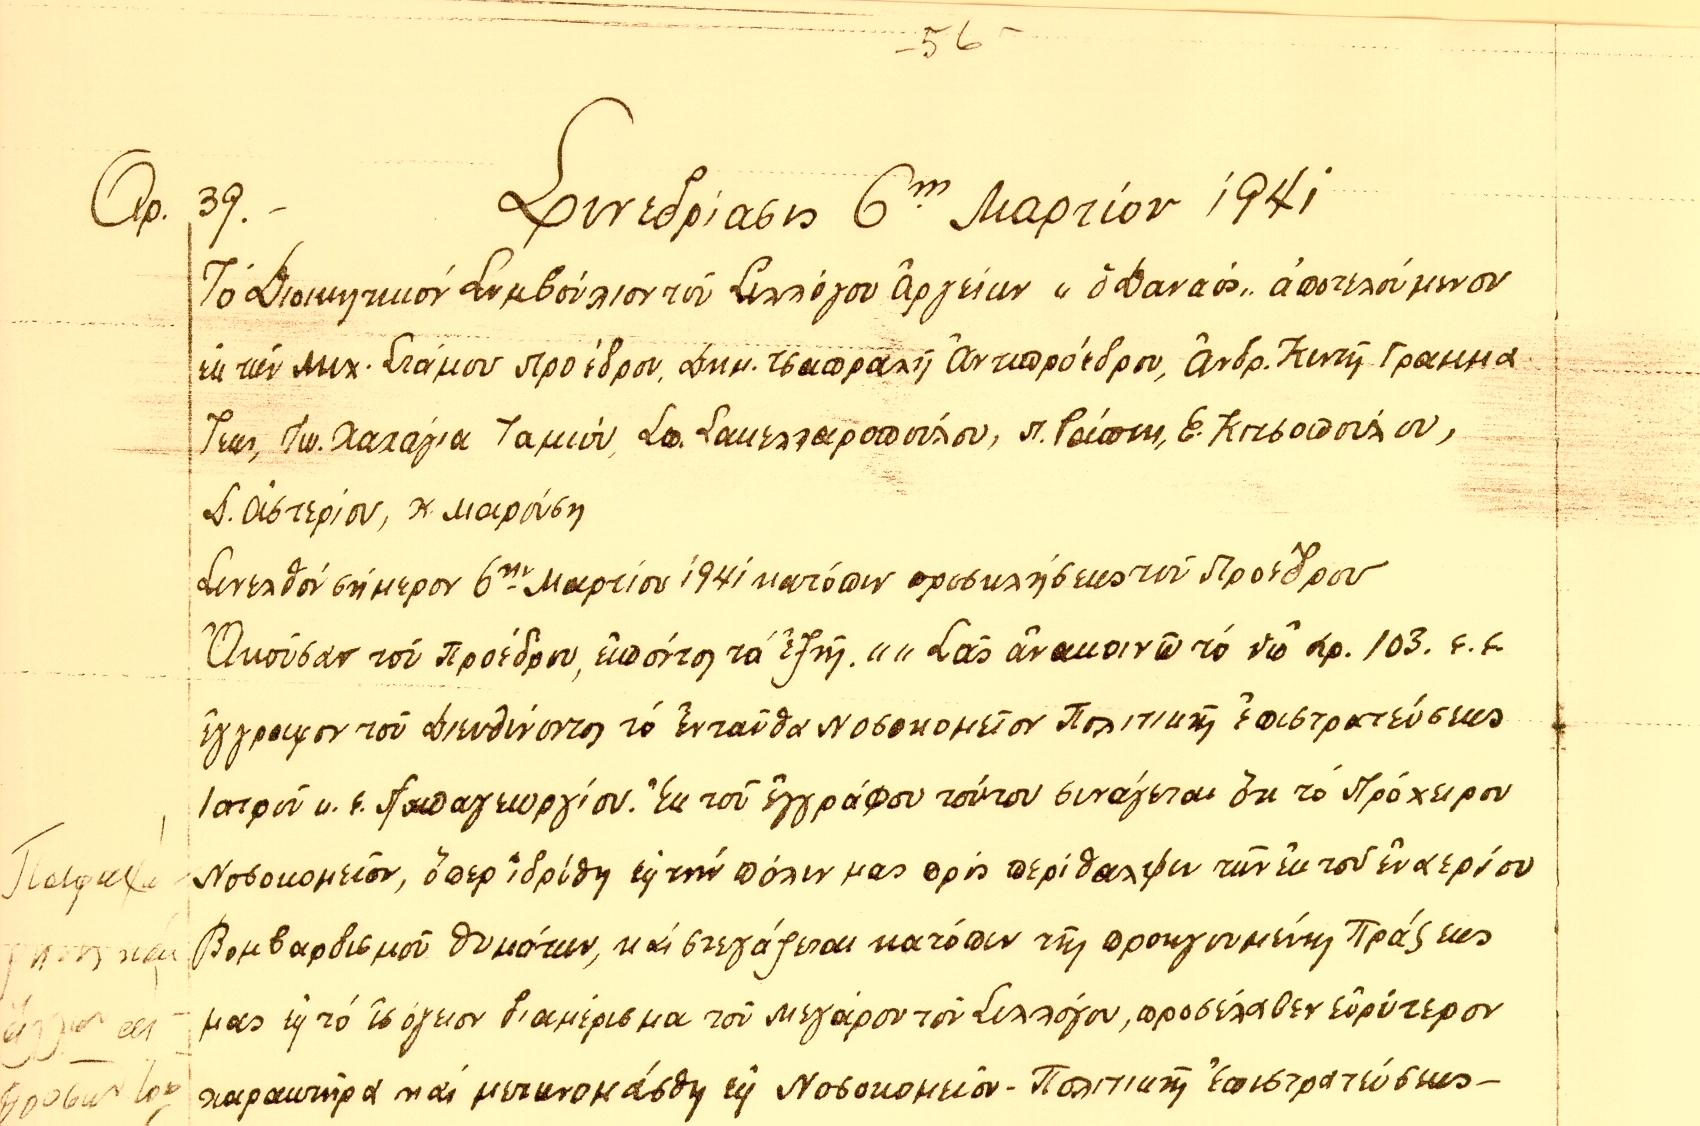 -56-
Αρ. 39.- Συνεδρίασις 6ης Μαρτίου 1941
Τό Διοικητικόν Συμβούλιον τοῦ Συλλόγου Ἀργείων „ ὁ Δαναός„ ἀποτελούμενον
ἐκ τῶν Μιχ. Στάμου Προέδρου, Δημ. Τσαπραλῆ Ἀντιπροέδρου, Ἀνδρ. Κεντῆ Γραμμα
τέως, Ἰω. Χαλάγια Ταμίου, Σπ. Σακελλαροπούλου, Π. Ράπτη, Ε. Κιτσοπούλου,
Δ. Ἀστερίου, Χ. Μαρούση
Συνελθόν σήμερον 6ην Μαρτίου 1941 κατόπιν προσκλήσεως τοῦ Προέδρου
Ἀκοῦσαν τοῦ Προέδρου, εἰπόντος τά ἑξῆς. „„ Σᾶς ἀνακοινῶ τό ὑπ' ἀρ. 103. ἐ.ἔ.
ἔγγραφον τοῦ Διευθύνοντος τό ἐνταῦθα Νοσοκομεῖον Πολιτικῆς Ἐπιστρατεύσεως
Ἰατροῦ κ. Ε. Παπαγεωργίου. Ἐκ τοῦ ἐγγράφου τούτου συνάγεται ὅτι τό Πρόχειρον
Νοσοκομεῖον, ὅπερ ἱδρύθη εἰς τήν πόλιν μας πρός περίθαλψιν τῶν ἐκ τοῦ ἐναερίου
Βομβαρδισμοῦ θυμάτων, καί στεγάζεται κατόπιν τῆς προηγουμένης Πράξεως
μας εἰς τό ἰσόγειον διαμέρισμα τοῦ Μεγάρου τοῦ Συλλόγου, προσέλαβεν εὐρύτερον
χαρακτῆρα καί μετωνομάσθη εἰς Νοσοκομεῖον - Πολιτικῆς Ἐπιστρατεύσεως -